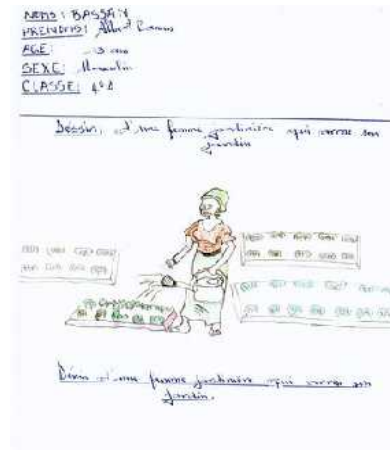 NOMS : BASSAIY
PRENOMS : Albert
AGE : 13 ans
SEXE : Masculin
CLASSE : 4e
Dessin, d'une femme jardinière qui arrose son
jardin
Dessin d'une femme jardinière qui arrose son
jardin.